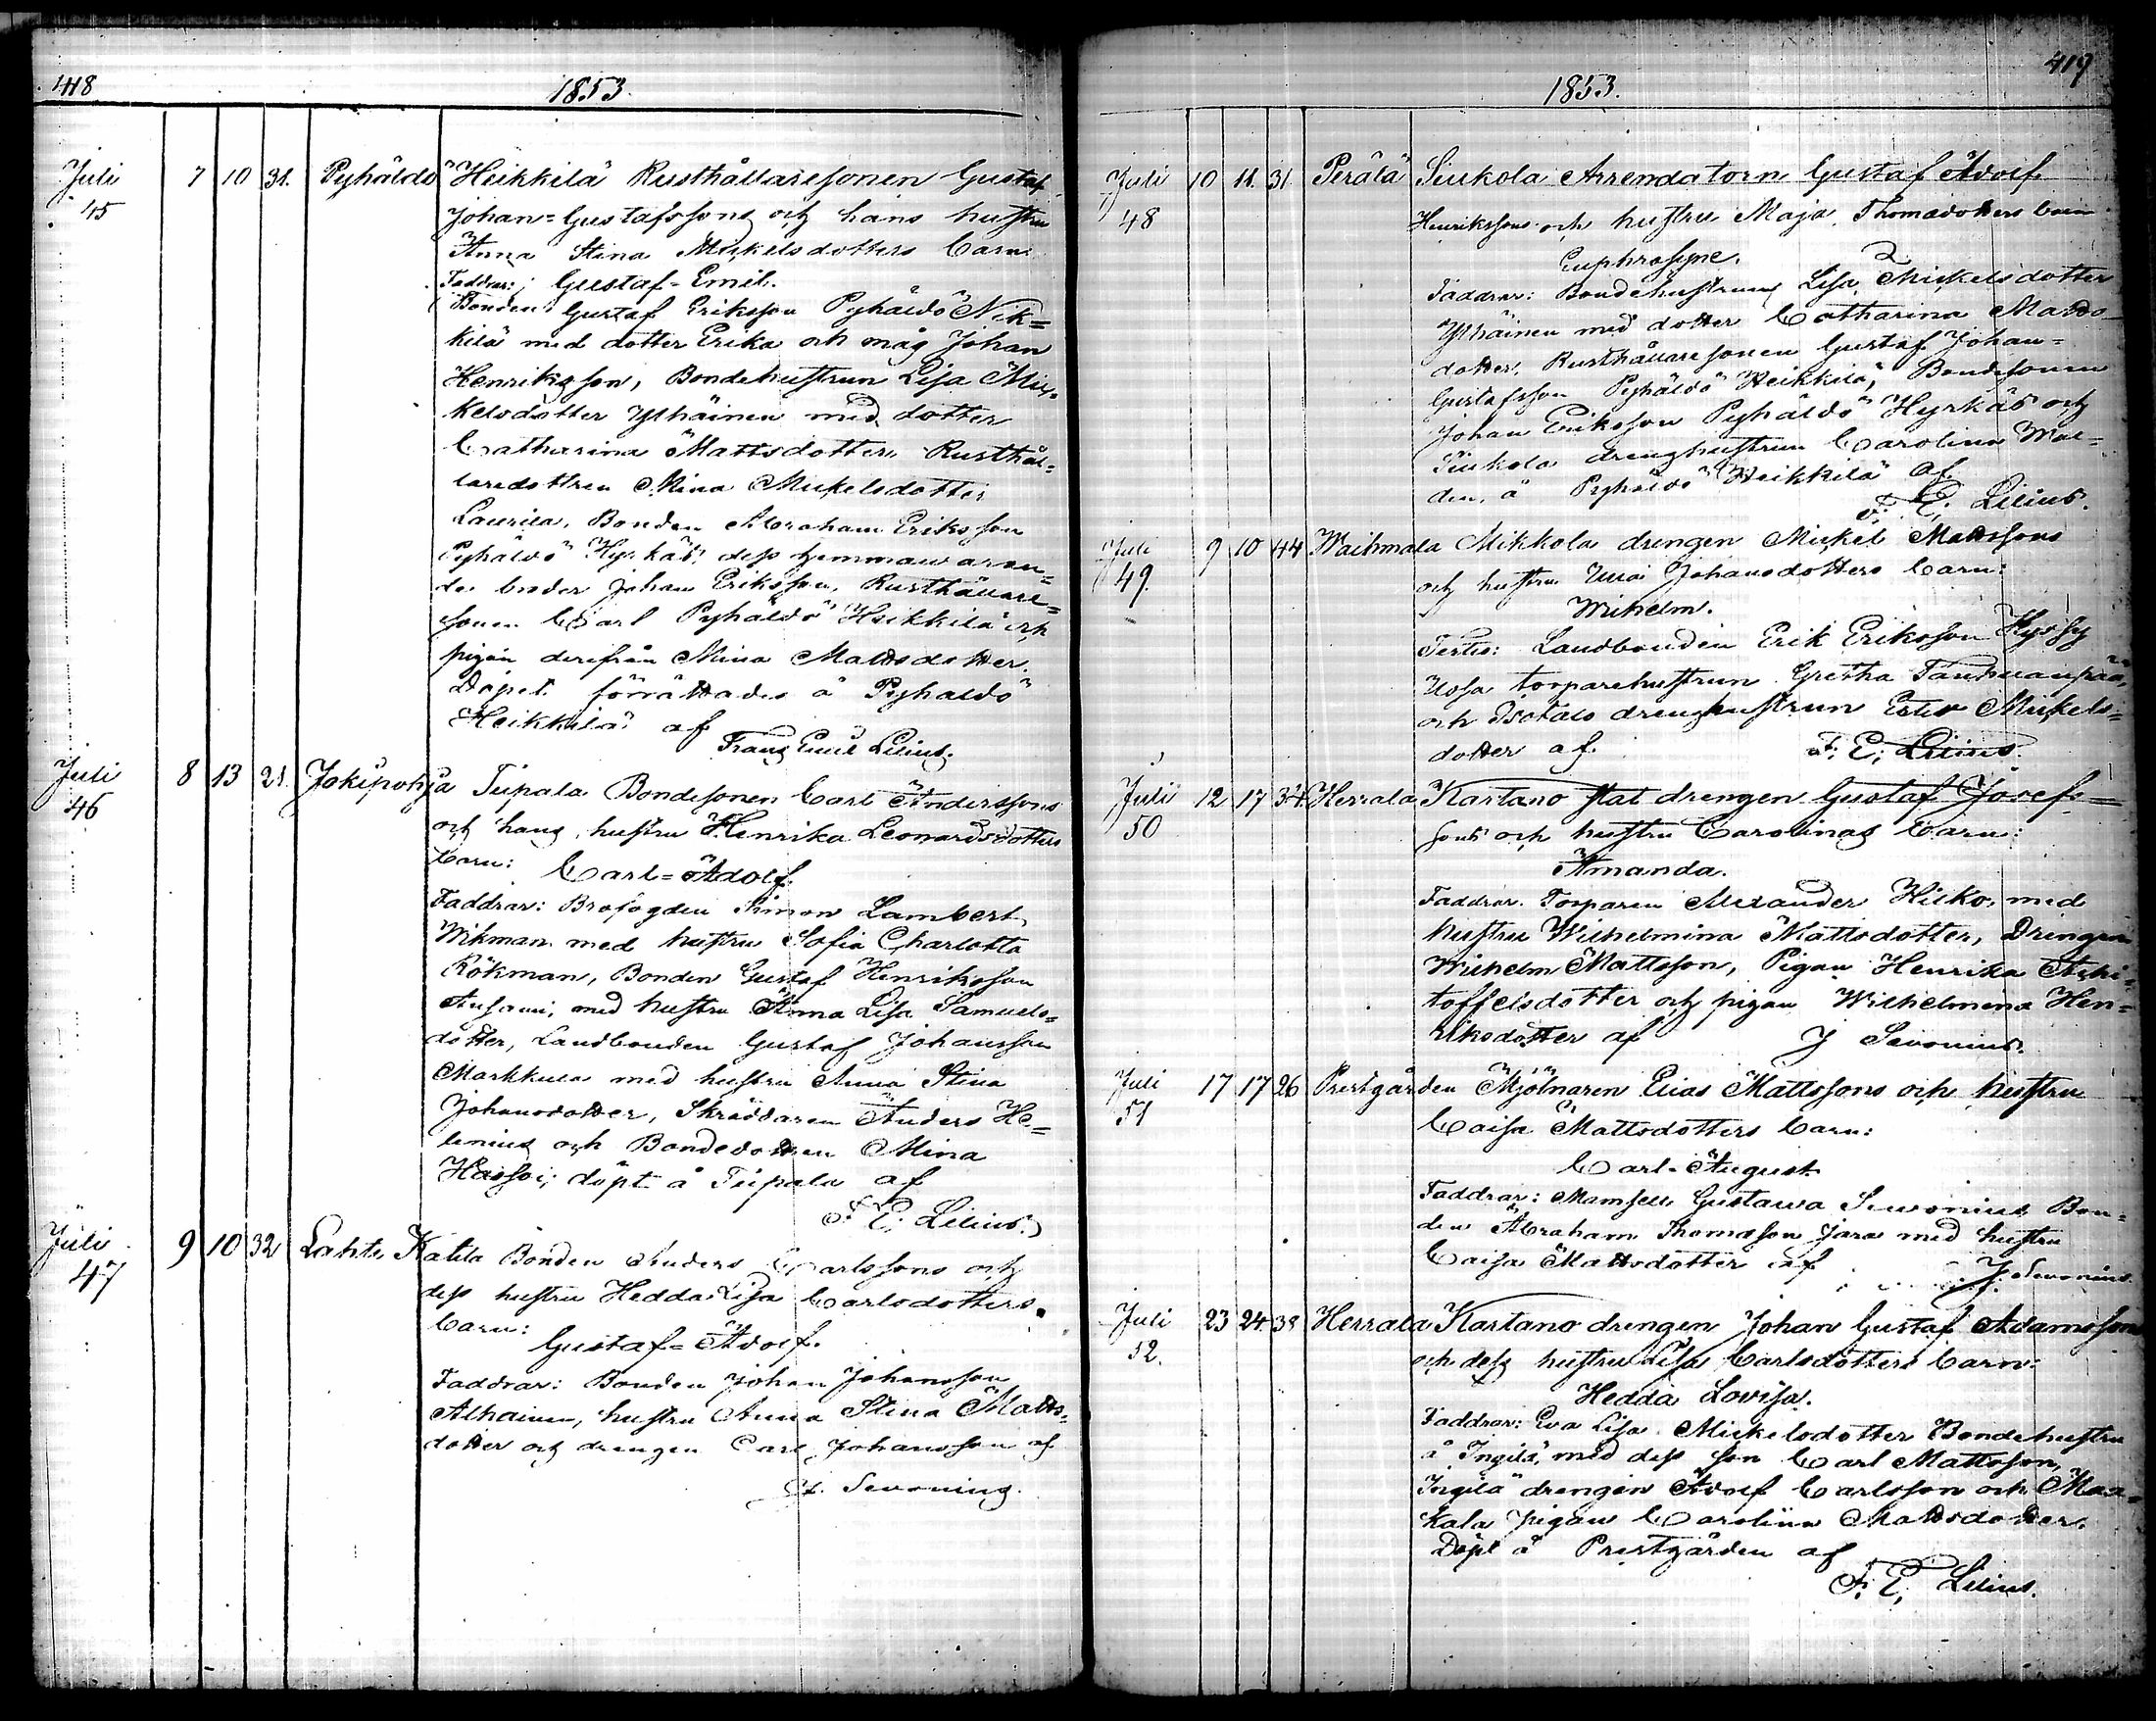 418
1853.
Juli 45 7 10 31. Pyhäldö Heikkilä Rusthållaresonen Gustaf
Johan=Gustafssons och hans hustru
Anna Stina Mickelsdotters barn:
Faddrar: Gustaf=Emil.
Bonden Gustaf Eriksson Pyhäldö Nik=
kilä med dotter Erika och måg Johan
Henriksson, Bondehustrun Lisa Mic=
kelsdotter Ylhäinen med dotter
Catharina Mattsdotter, Rusthål=
laredottren Mina Mickelsdotter
Laurila, Bonden Abraham Eriksson
Pyhäldö Hyrkäs, dess hemmavaran=
de broder Johan Eriksson, Rusthållare=
sonen Carl Pyhäldö Heikkilä och
pigan derifrån Mina Mattsdotter.
Döpet förrättades å Pyhäldö
Heikkilä af
Franz Emil Lilius.
Juli 46 8 13 21. Jokipohja Tupala Bondesonen Carl Anderssons
och hans hustru Henrika Leonardsdotters
barn: Carl=Adolf.
Faddrar: Brofogden Simon Lambert
Wikman med hustru Sofia Charlotta
Rökman, Bonden Gustaf Henriksson
med hustru Anna Lisa Samuels=
dotter, Landbonden Gustaf Johansson
Markkula med hustru Anna Stina
Johansdotter, Skräddaren Anders He=
lenius och Bondedottren Mina
Hassoi; döpt å Tupala af
F. E. Lilius.
Juli 47 9 10 32 Lahtis Katila Bonden Anders Carlssons och
dess hustru Hedda Lisa Carlsdotters
barn:
Gustaf=Adolf.
Faddrar: Bonden Johan Johansson
Alhainen, hustru Anna Stina Matts=
dotter och drengen Carl Johansson af
J. Sevonius.
419
1853.
Juli 48 10 11. 31. Perälä Siukola Arrendatorn Gustaf Adolf
Henrikssons och hustru Maja Thomædotters barn
Euphrosyne.
Faddrar: Bondehustrun Lisa Mickelsdotter
Ylhäinen med dotter Catharina Matts=
dotter, Rusthållaresonen Gustaf Johan=
Gustafsson Pyhäldö Heikkilä, Bondesonen
Johan Eriksson Pyhäldö Hyrkäs och
Siukola drenghustrun Carolina Wal=
den, å Pyhäldö Heikkilä af
F. E. Lilius.
Juli 49. 9 10 44 Waihmala Mikkola drengen Mickel Mattssons
och hustru Johansdotters barn:
Wilhelm.
Testes: Landbonden Erik Eriksson
torparehustrun Gretha
och drenghustrun Ester Mickels=
dotter af F. E. Lilius.
Juli 50 12 17 34. Herrala Kartano stat drengen Gustaf Josef=
sons och hustru Carolinas barn:
Amanda.
Faddrar. Torparen Alexander Hilko med
hustru Wilhelmina Mattsdotter, Drengen
Wilhelm Mattsson, Pigan Henrika
toffelsdotter och pigan Wilhelmina Hen=
riksdotter af J Sevonius.
Juli 51 17 17 26 Prestgården Mjölnaren Elias Mattssons och hustru
Caisa Mattsdotters barn:
Carl-August
Faddrar: Mamsell Gustawa Sewonius Bon=
den Abraham Thomasson Jara med hustru
Caisa Mattsdotter af J. Sevonius.
Juli 52. 23 24. 38 Herrala Kartano drengen Johan Gustaf Adamsson
och dess hustru Lisa Carlsdotters barn:
Hedda Lovisa.
Faddrar: Eva Lisa Mickelsdotter Bondehustru
å Ingilä, med dess son Carl Mattsson,
Ingilä drengen Adolf Carlsson och Maa=
kala pigan Carolina Mattsdotter.
Döpt å Prestgården af
F. E. Lilius.